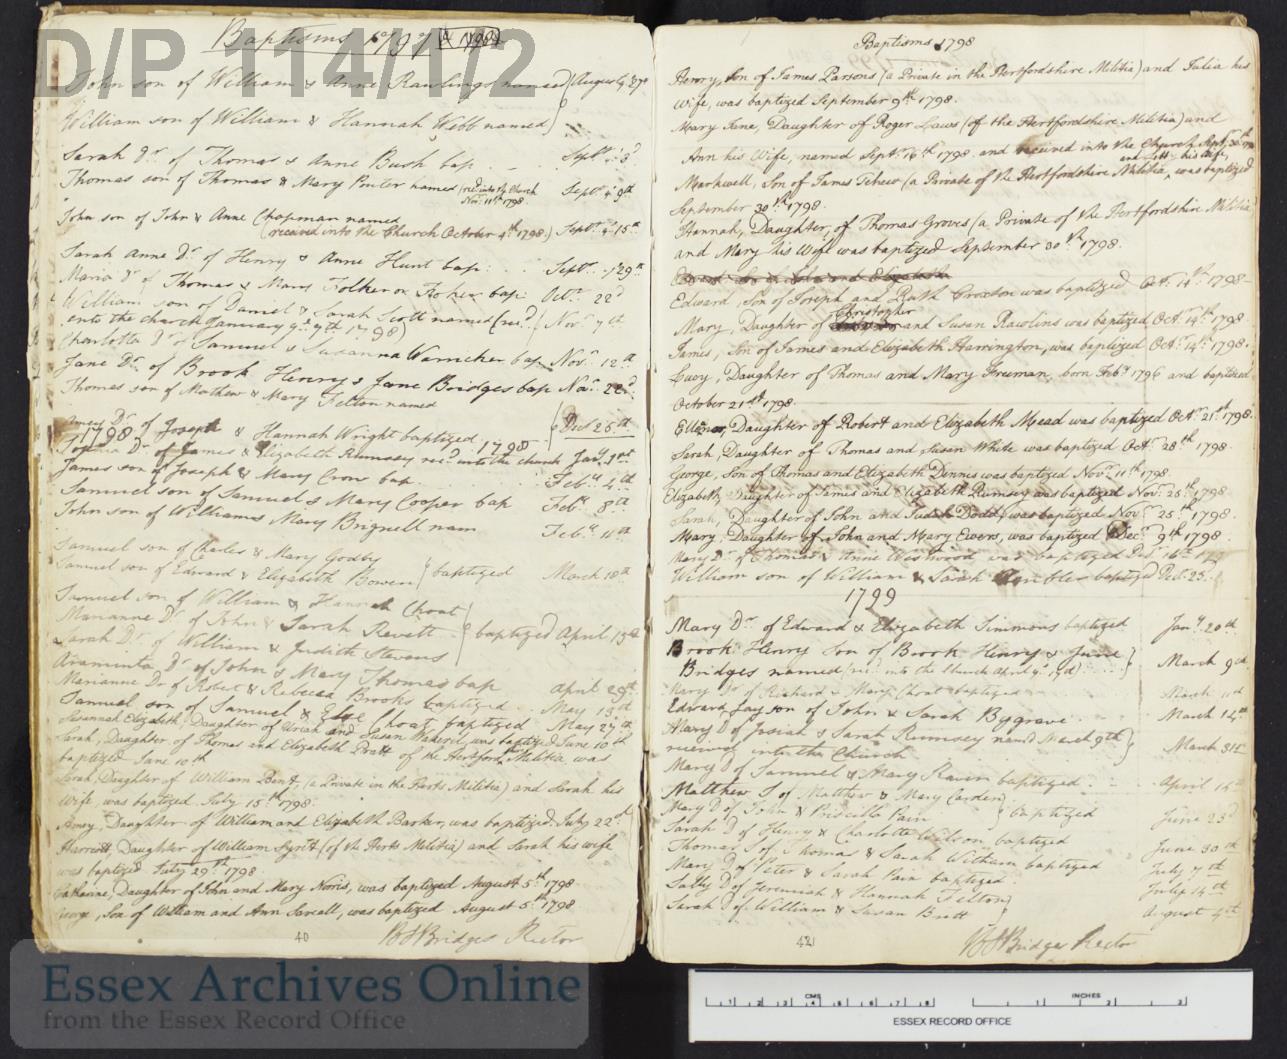 D/P 114/1/2
Baptisms 1797 & 1798
John son of William & Anne Rawlings named August 27th
William son of William & Hannah Webb named
Sarah Dr. of Thomas & Anne Bush bap. Septr. 3d
Thomas son of Thomas & Mary Porter named (recd. into the Church Septr. 9th
Novr. 11th 1798
John son of John & Anne Chapman named
(received into the Church October 4th 1798) Septr. 15th
Sarah Anne Dr. of Henry & Anne Hunt bap. Septr. 29th
Maria Dr. of Thomas & Mary bap. Octr. 22d
William son of Daniel & Sarah Scott named (recd. Novr. 7th
into the church January 9th 1798)
Charlotte Dr. of Samuel & Susanna Warncker bap. Novr. 12th
Jane Dr. of Brook Henry & Jane Bridges bap. Novr. 22d
Thomas son of Mathew & Mary Felton named
Dr. of Joseph & Hannah Wright baptized Decr. 25th
1798 1798
Dr. of James & Elizabeth Rumsey recd. into the church Jany. 1st
James son of Joseph & Mary Crow bap. Feby. 4th
Samuel son of Samuel & Mary Cooper bap Feby. 8th
John son of William & Mary Brignell nam Feby. 11th
Samuel son of Charles & Mary Godby
Samuel son of Edward & Elizabeth Bowen baptized March 18th
Samuel son of William & Hannah Choat
Marianne Dr. of John & Sarah Revett baptized April 15th
Sarah Dr. of William & Judith Stevens
Araminta Dr. of John & Mary Thomas bap April 29th
Marianne Dr. of Robert & Rebecca Brooks baptized May 13th
Samuel son of Samuel & Choat baptized May 27th
Susannah Elizabeth, Daughter of Uriah and Susan was baptized June 10th
Sarah, Daughter of Thomas and Elizabeth Pratt of the Hertford. Militia was
baptized June 10th
Sarah, Daughter of William Bent, (a Private in the Herts Militia) and Sarah his
Wife, was baptized July 15th 1798.
Amey, Daughter of William and Elizabeth Barker, was baptized July 22d
Harriett, Daughter of William (of the Herts Militia) and Sarah his wife
was baptized July 29th 1798
Catharine, Daughter of John and Mary Norris, was baptized August 5th 1798
George, Son of William and Ann Sarcall, was baptized August 5th 1798
40 B H Bridges Rector
Baptisms 1798
Henry, Son of James Parsons, (a Private in the Hertfordshire Militia) and Julia his
Wife, was baptized September 9th 1798.
Mary Jane, Daughter of Roger Laws (of the Hertfordshire Militia) and
Ann his Wife, named Septr. 16th 1798. and received into the Church Septr. 30th
and his Wife,
Markwell, Son of James Tebew (a Private of the Hertfordshire Militia, was baptized
September 30th 1798.
Hannah, Daughter, of Thomas Groves (a Private of the Hertfordshire Militia
and Mary his Wife was baptized September 30th 1798.
Edward Son of John and Elizabeth
Edward, Son of Joseph and Ruth Croxton was baptized Octr. 14th 1798
Christopher
Mary, Daughter of and Susan Rawlins was baptized Octr. 14th 1798.
James, Son of James and Elizabeth Harrington, was baptized Octr. 14th 1798.
Lucy, Daughter of Thomas and Mary Freeman born Feby. 1796 and baptized
October 21st 1798.
Ellenor, Daughter of Robert and Elizabeth Mead was baptized Octr. 21st 1798.
Sarah Daughter of Thomas and Susan White was baptized Octr. 28th 1798.
George, Son of Thomas and Elizabeth Dennis was baptized Novr. 11th 1798.
Elizabeth, Daughter of James and Elizabeth Rumsey was baptized Novr. 25th 1798
Sarah, Daughter of John and Judah Dodd, was baptized Novr. 25th 1798.
Mary, Daughter of John and Mary Evers, was baptized Decr. 9th 1798.
Mary Dr. of Thomas & Anne Westwood was baptized Decr. 16th
William son of William & Sarah baptized Decr. 25.
1799
Mary Dr. of Edward & Elizabeth Simmons baptized Jany. 20th
Brook Henry son of Brook Henry & Jane
Bridges named (recd. into the Church April 9th) March 9th
Mary Dr. of Richard & Mary Choat baptized March 11th
Edward Jay son of John & Sarah Bygrave March 14th
Mary D of Josiah & Sarah Rumsey named March 9th
received into the Church March 31st
Mary D of Samuel & Mary Raven baptized April 14th
Matthew S of Matthew & Mary Carden
Mary D of John & Priscilla Pain baptized June 23d
Sarah D of Henry & Charlotte Wilson baptized June 30th
Thomas S of Thomas & Sarah Witham baptized July 7th
Mary D of Peter & Sarah Pain baptized July 14th
Sally D of Jeremiah & Hannah Felton
Sarah D of William & Susan Brett August 4th
42 B H Bridges Rector
Essex Archives Online
from the Essex Record Office
CMS
1 2 3 4 5 6 7 8
INCHES
1 2 3
ESSEX RECORD OFFICE